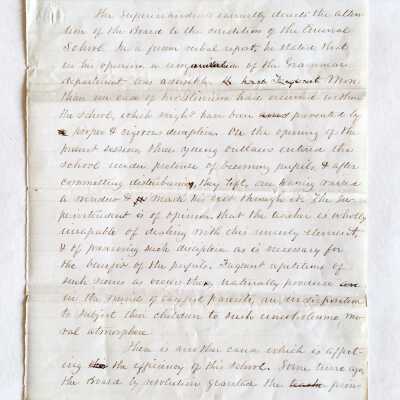 The Superintendent earnestly directs the atten-
tion of the Board to the condition of the Arsenal
School. In a former verbal report, he stated that
in his opinion a reorganization of the Grammar
department was advisable. More
than one case of hooliganism had occurred within
the school, which might have been prevented by
a proper & vigorous discipline. On the opening of the
present session, three young outlaws entered the
school under pretense of becoming pupils, & after
committing disturbances, they left, one having raised
a window & made his exit through it. The Su-
perintendent is of opinion that the teacher is wholly
incapable of dealing with this unruly element,
& of preserving such discipline as is necessary for
the benefit of the pupils. Frequent repetitions of
such scenes as occur there, naturally produce
in the minds of careful parents, an indisposition
to subject their children to such unwholesome mo-
ral atmosphere.
There is another cause which is affect-
ing the efficiency of this school. Some time ago,
the Board by resolution granted the prin-